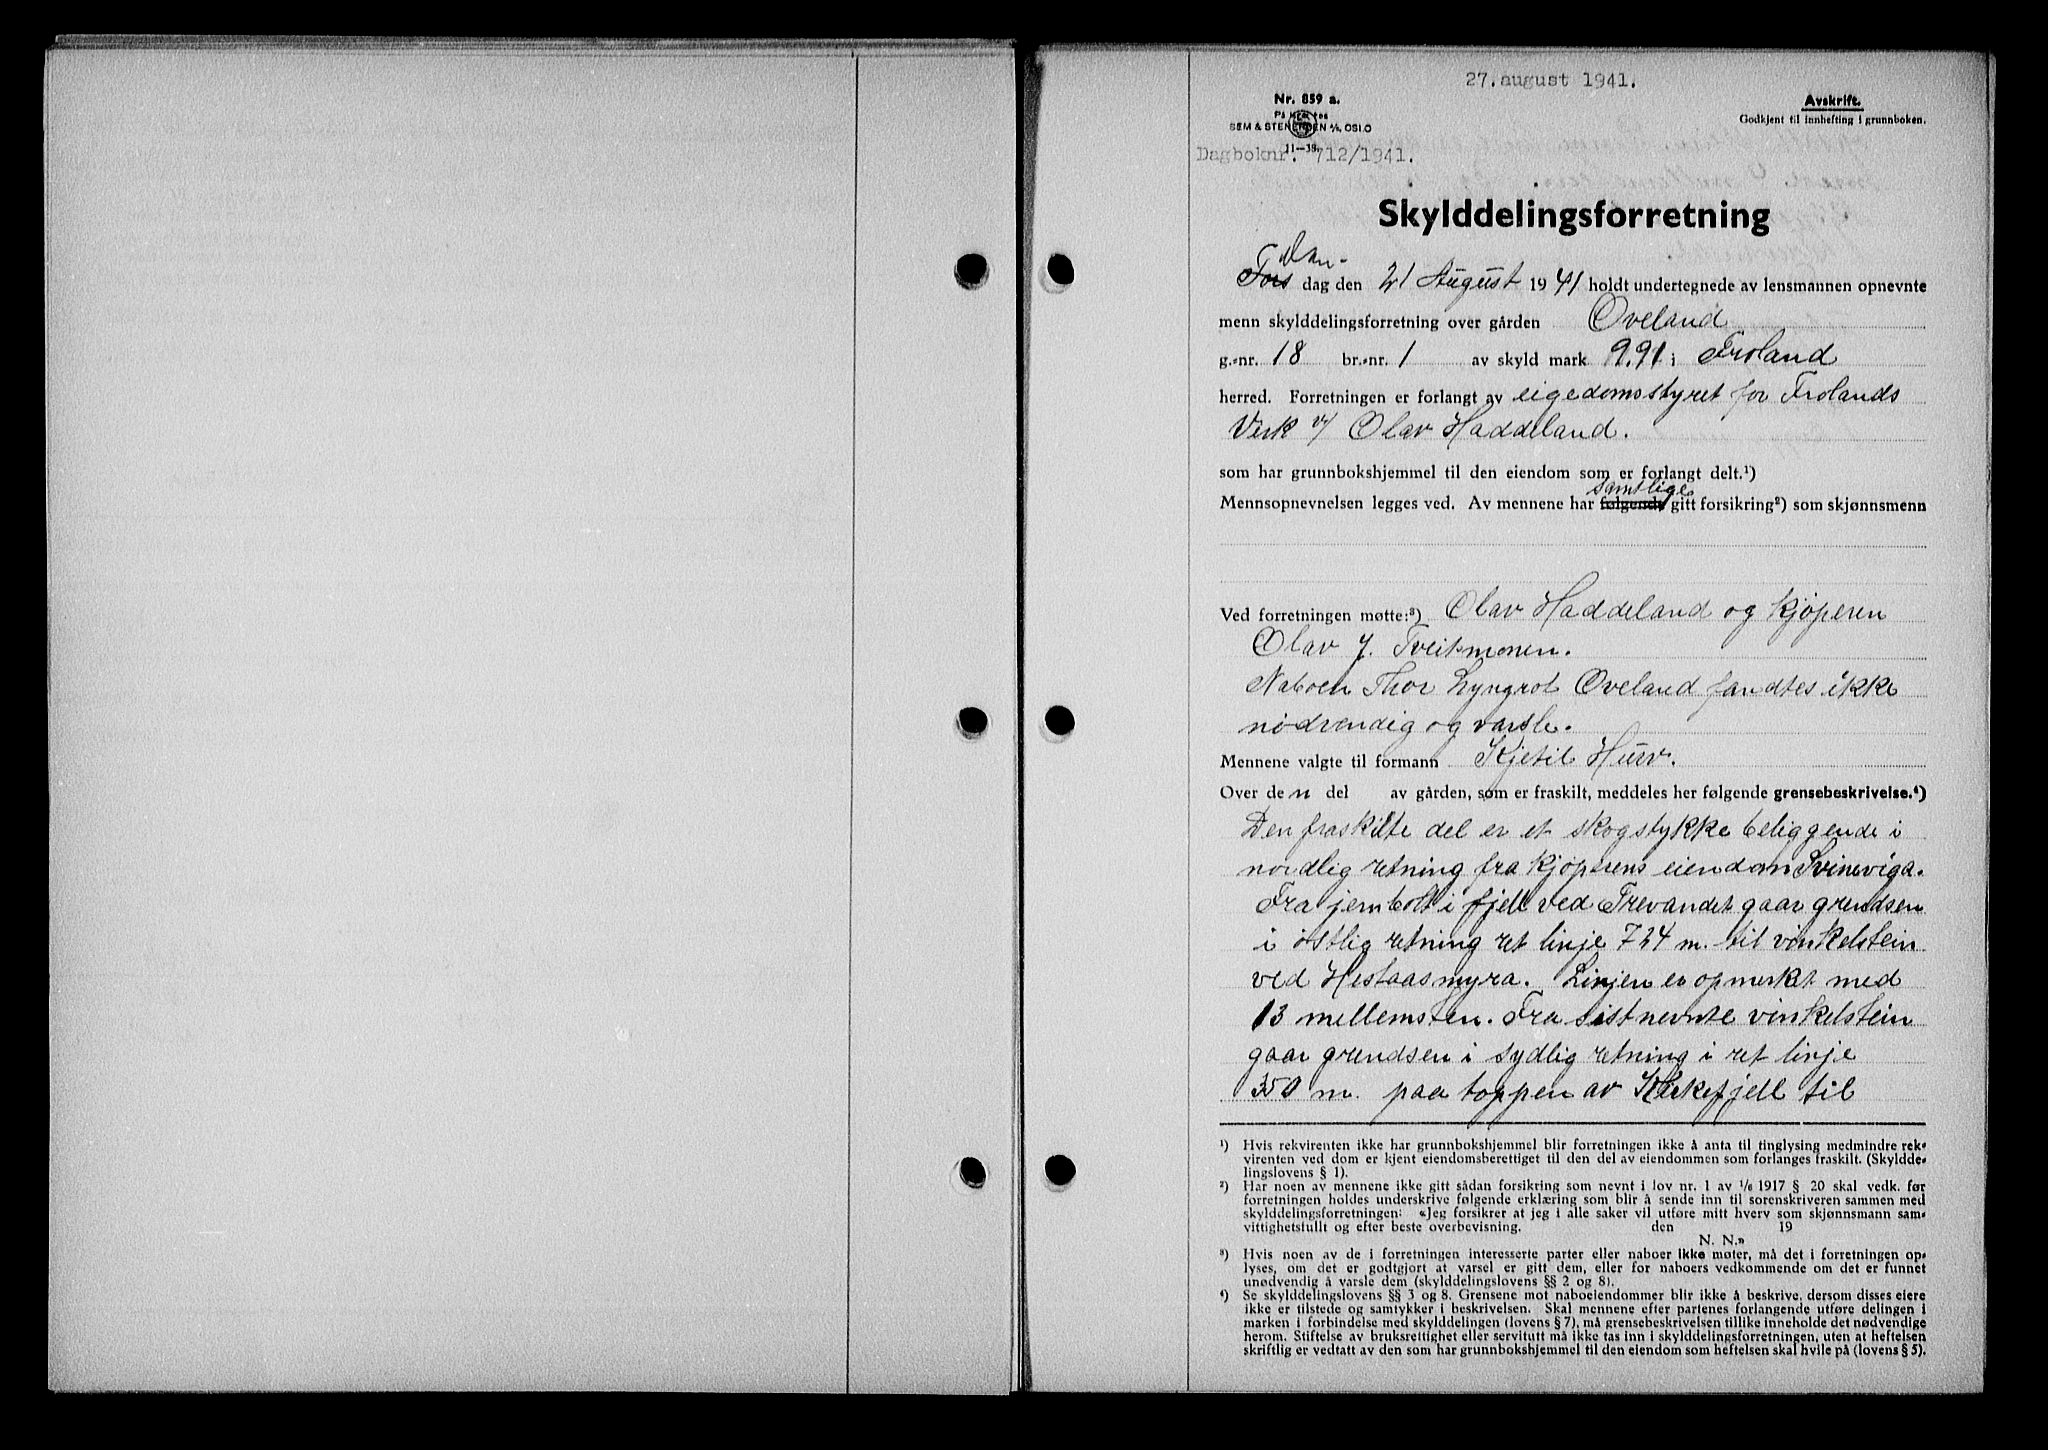 27. august 1941.
Nr. 859 a.
På lager hos
SEM & STENERSEN A/S, OSLO
11—38.
Avskrift.
Godkjent til innhefting i grunnboken.
Dagboknr. 712/1941.
Skylddelingsforretning
Fors dag den 21 August 1941 holdt undertegnede av lensmannen opnevnte
menn skylddelingsforretning over gården Øveland
g.-nr. 18 br.-nr. 1 av skyld mark 9.91 i Froland
herred. Forretningen er forlangt av eigedomsstyret for Frolands
Verk v/ Olav Haddeland.
som har grunnbokshjemmel til den eiendom som er forlangt delt.¹)
samtlige
Mennsopnevnelsen legges ved. Av mennene har følgende gitt forsikring²) som skjønnsmenn
Ved forretningen møtte:³) Olav Haddeland og kjøperen
Olav J. Tveitmonen.
Naboen Thor Lyngrot Øveland fandtes ikke
nødvendig og varsle.
Mennene valgte til formann Kjetil Hurv.
Over den del av gården, som er fraskilt, meddeles her følgende grensebeskrivelse.⁴)
Den fraskilte del er et skogstykke beliggende i
nordlig retning fra kjøperens eiendom Svineviga.
Fra jernbolt i fjell ved Trevandet gaar grendsen
i østlig retning ret linje 724 m. til vinkelstein
ved Hestaasmyra. Linjen er opmerkt med
13 mellemsten. Fra sistnevnte vinkelstein
gaar grendsen i sydlig retning i ret linje
350 m. paa toppen av Kirkefjell til
¹) Hvis rekvirenten ikke har grunnbokshjemmel blir forretningen ikke å anta til tinglysing medmindre rek-
virenten ved dom er kjent eiendomsberettiget til den del av eiendommen som forlanges fraskilt. (Skyldde-
lingslovens § 1).
²) Har noen av mennene ikke gitt sådan forsikring som nevnt i lov nr. 1 av 1/6 1917 § 20 skal vedk. før
forretningen holdes underskrive følgende erklæring som blir å sende inn til sorenskriveren sammen med
skylddelingsforretningen: «Jeg forsikrer at jeg i alle saker vil utføre mitt hverv som skjønnsmann sam-
vittighetsfullt og efter beste overbevisning. den 19
N. N.»
³) Hvis noen av de i forretningen interesserte parter eller naboer ikke møter, må det i forretningen op-
lyses, om det er godtgjort at varsel er gitt dem, eller for naboers vedkommende om det er funnet
unødvendig å varsle dem (skylddelingslovens §§ 2 og 8).
⁴) Se skylddelingslovens §§ 3 og 8. Grensene mot naboeiendommer blir ikke å beskrive, dersom disses eiere
ikke er tilstede og samtykker i beskrivelsen. Skal mennene efter partenes forlangende utføre delingen i
marken i forbindelse med skylddelingen (lovens § 7), må grensebeskrivelsen tillike inneholde det nødvendige
herom. Stiftelse av bruksrettighet eller servitutt må ikke tas inn i skylddelingsforretningen, uten at heftelsen
skriftlig er vedtatt av den som har grunnbokshjemmel til den eiendom som heftelsen skal hvile på (lovens § 5).